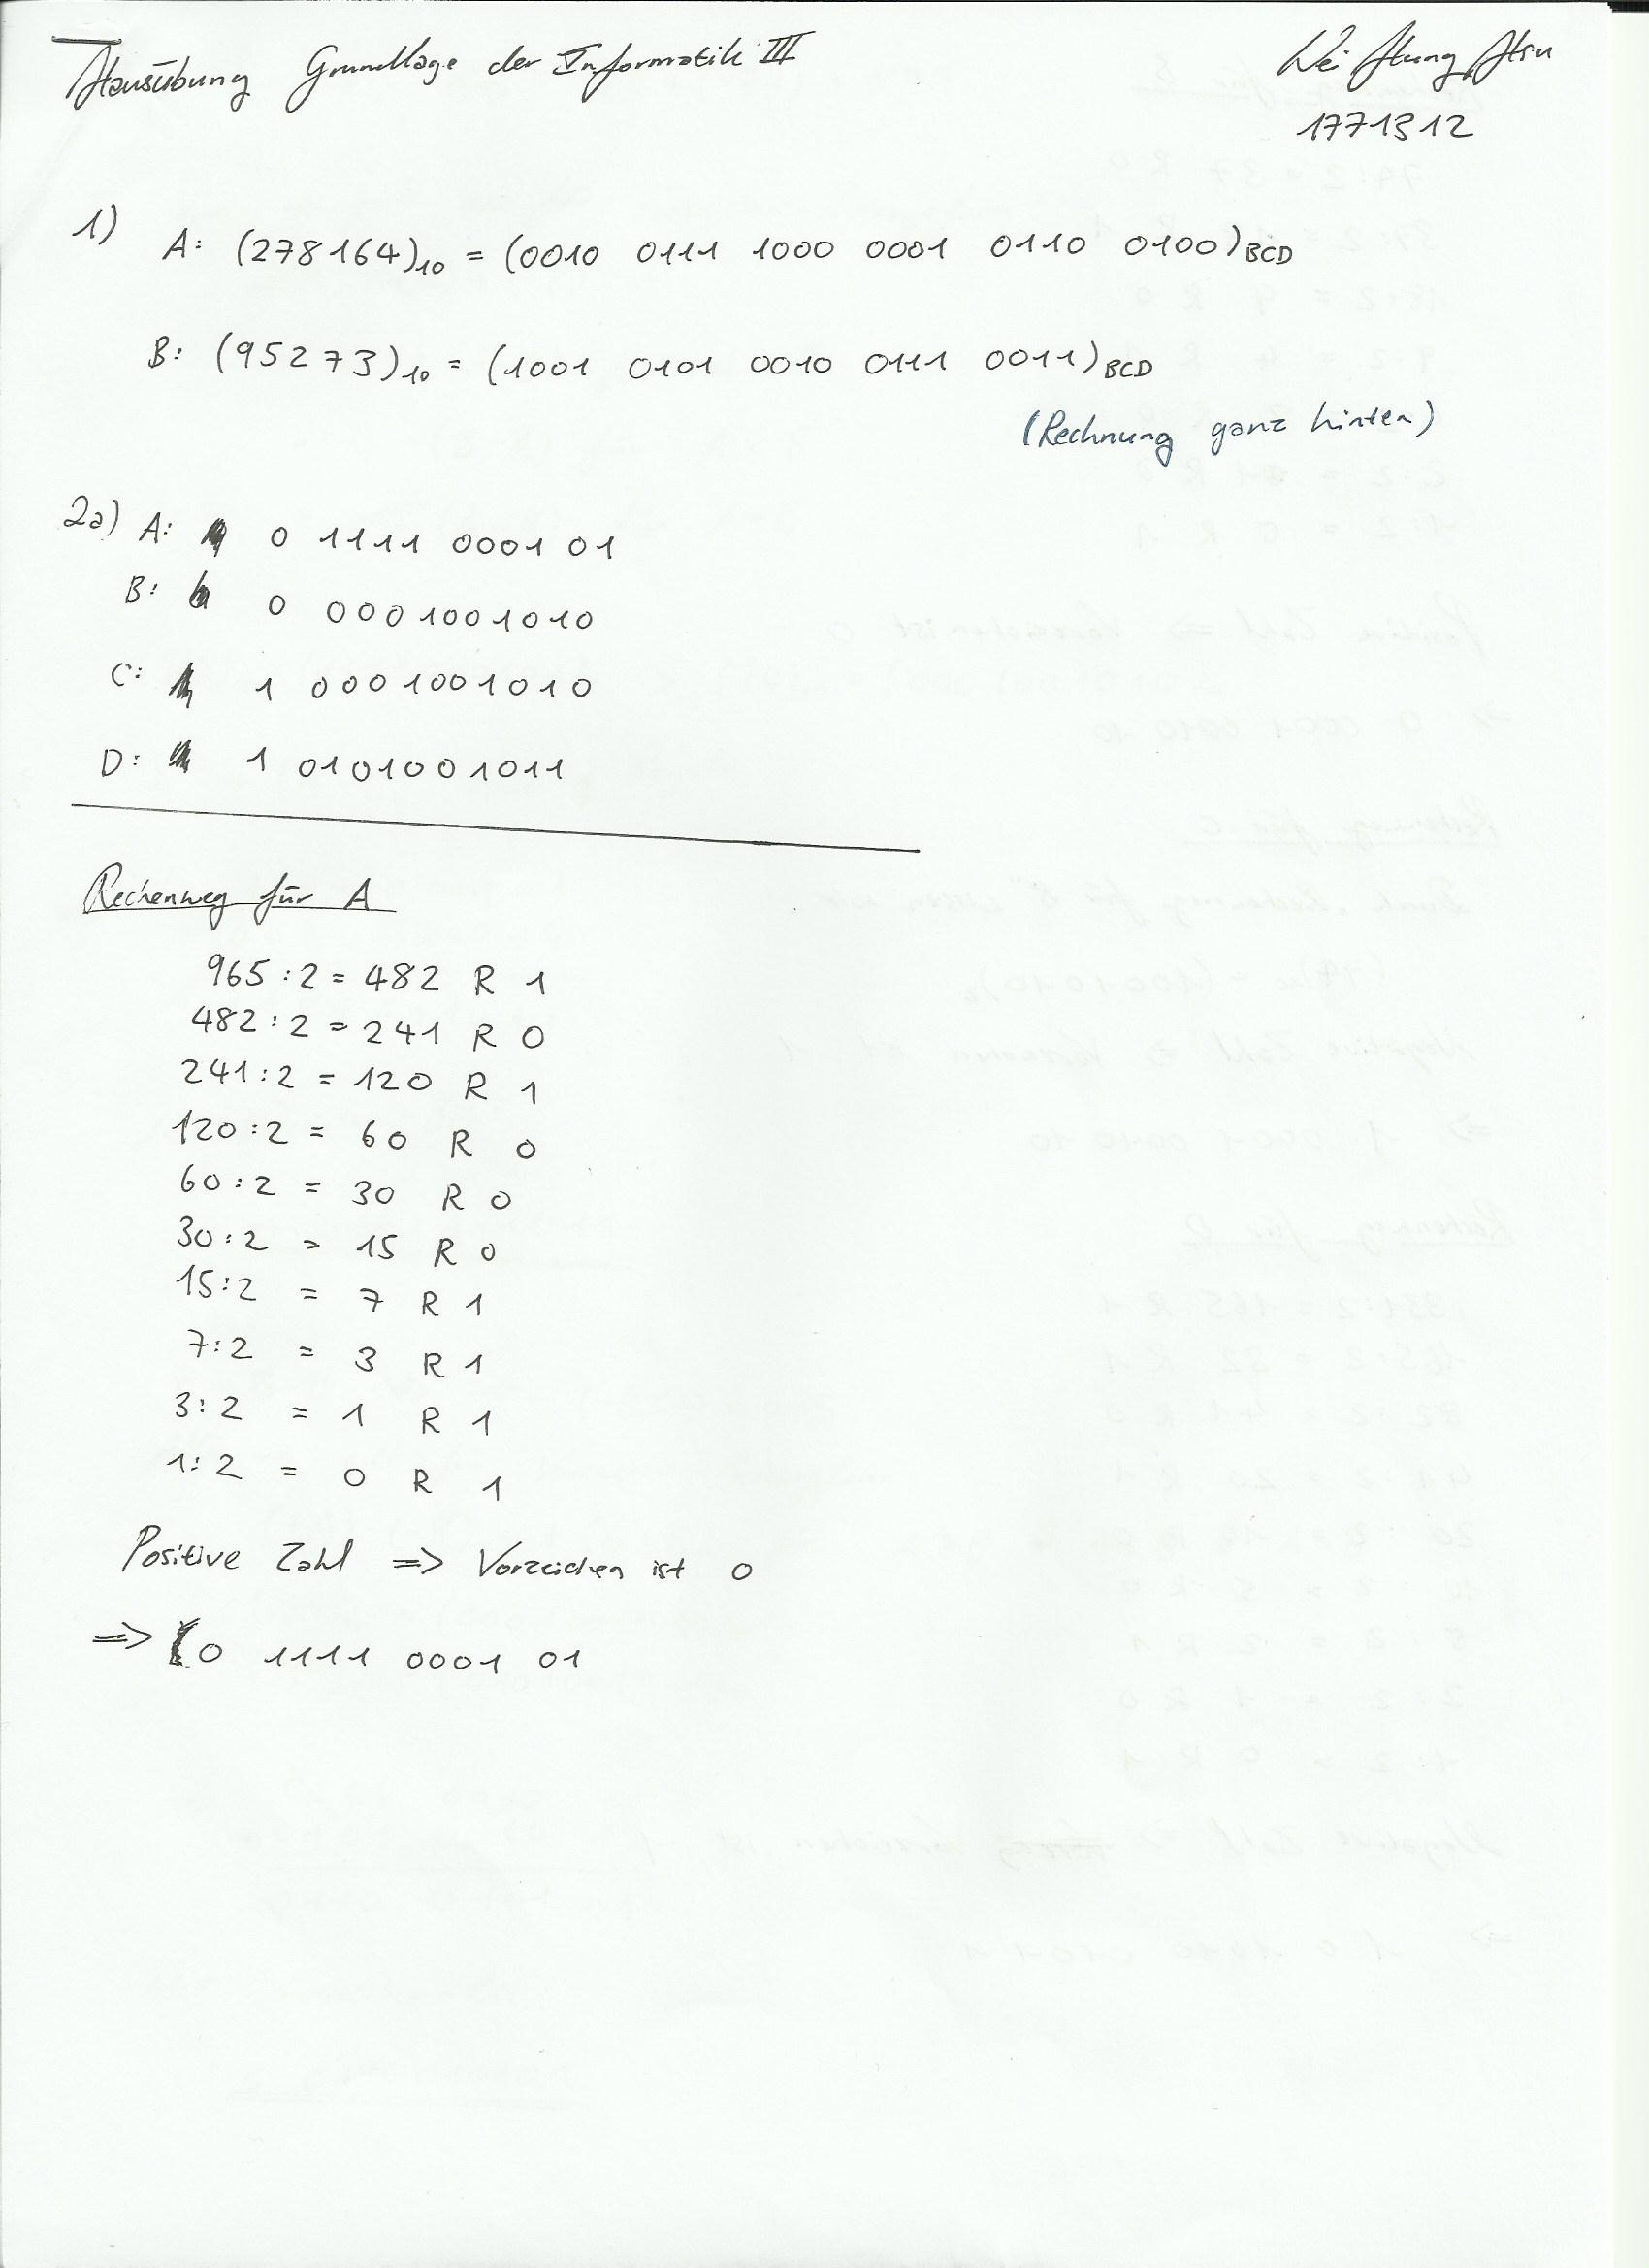 Hausübung Grundlage der Informatik III
Wei Hung Hsu
1771312
1) A: (278164)10 = (0010 0111 1000 0001 0110 0100)BCD
B: (95273)10 = (1001 0101 0010 0111 0011)BCD
(Rechnung ganz hinten)
2a) A: 0 1111 0001 01
B: 0 0001001010
C: 1 0001001010
D: 1 0101001011
Rechenweg für A
965:2 = 482 R 1
482:2 = 241 R 0
241:2 = 120 R 1
120:2 = 60 R 0
60:2 = 30 R 0
30:2 = 15 R 0
15:2 = 7 R 1
7:2 = 3 R 1
3:2 = 1 R 1
1:2 = 0 R 1
Positive Zahl => Vorzeichen ist 0
=> 0 1111 0001 01